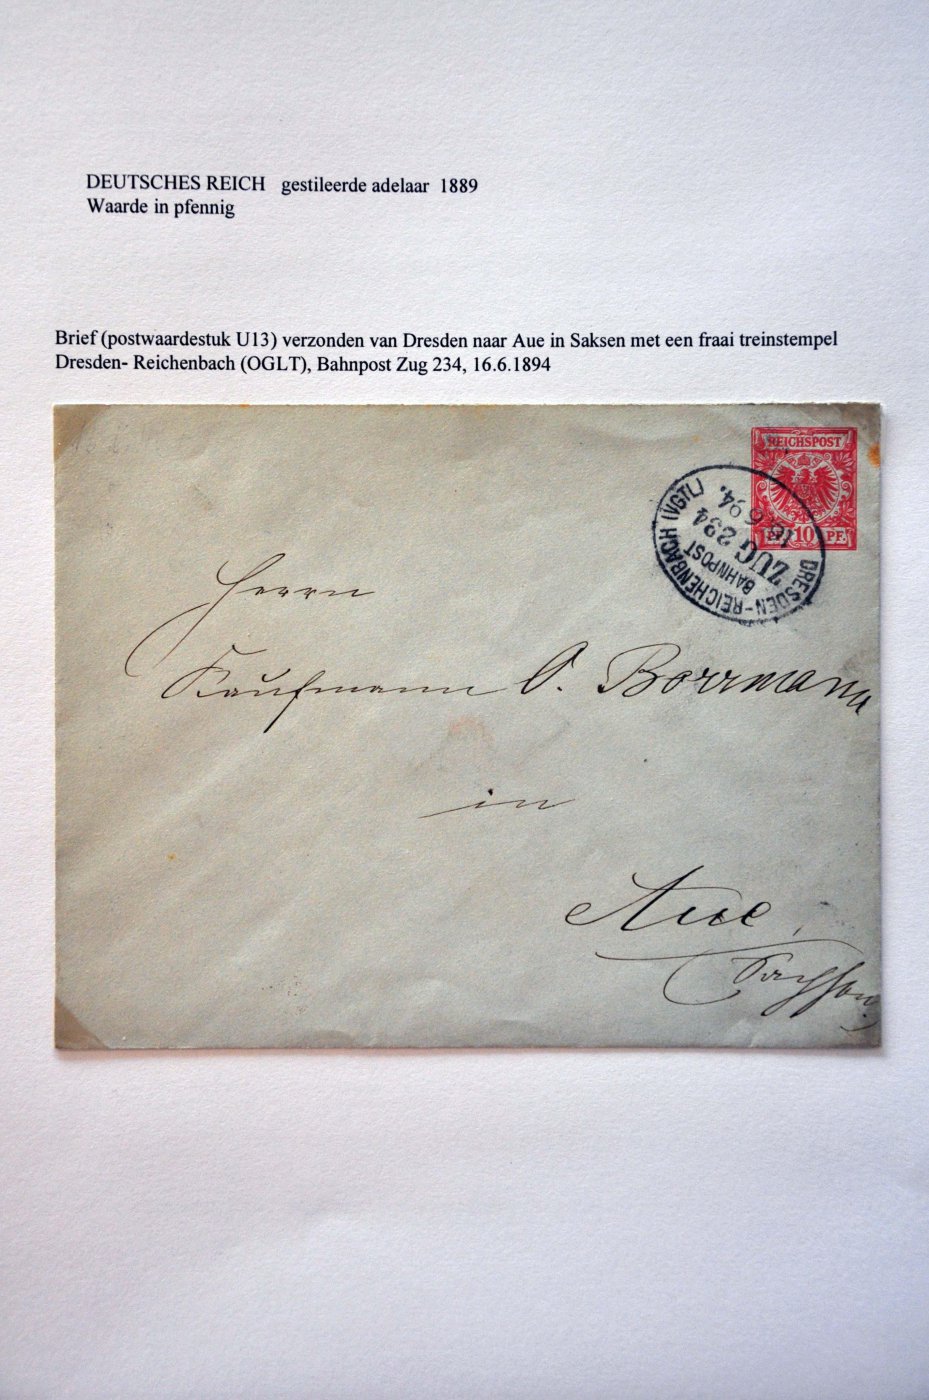 DEUTSCHES REICH gestileerde adelaar 1889
Waarde in pfennig
Brief (postwaardestuk U13) verzonden van Dresden naar Aue in Saksen met een fraai treinstempel
Dresden- Reichenbach (OGLT), Bahnpost Zug 234, 16.6.1894
REICHSPOST
PF. 10 PF.
DRESDEN-REICHENBACH (VGTL)
BAHNPOST
ZUG 234
16 6 94.
Herrn
Kaufmann O. Borrmann
in
Aue,
Sachsen